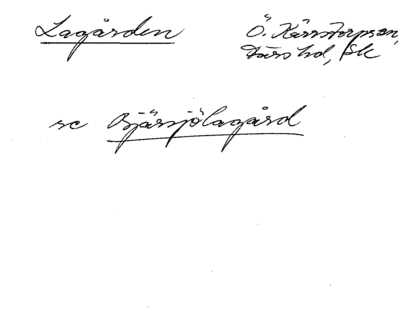 Lagården
Ö. Kärrstorps sn,
Färs hd, Sk
se Bjärsjölagård